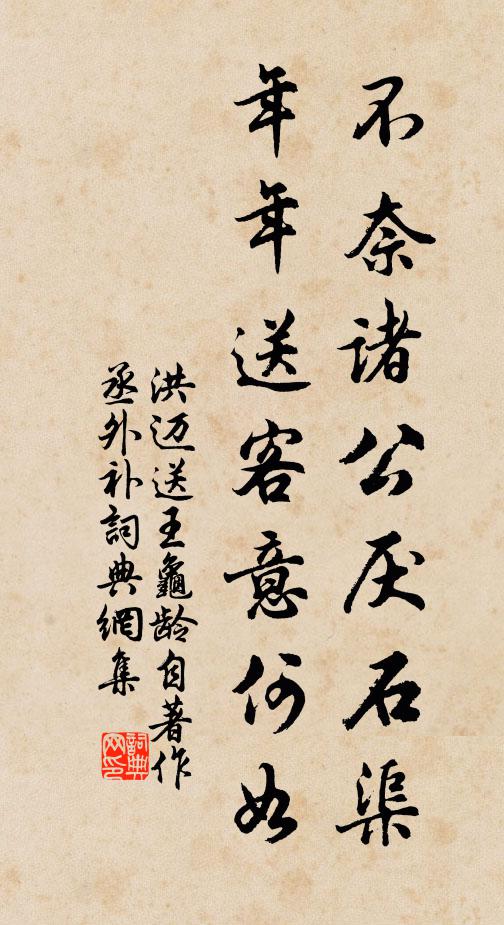 不奈諸公厌石渠
年年送客意何如
洪迈送王龜龄自著作
丞外补詞典網集
詞典
网印